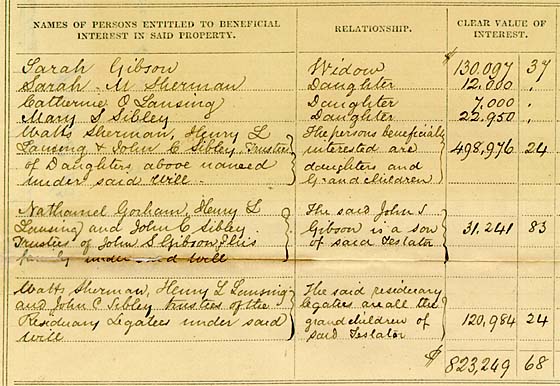 NAMES OF PERSONS ENTITLED TO BENEFICIAL INTEREST IN SAID PROPERTY. RELATIONSHIP. CLEAR VALUE OF INTEREST.
Sarah Gibson Widow $130,097 37
Sarah M Sherman Daughter 12,000 "
Catherine O Lansing Daughter 7,000 "
Mary S Sibley Daughter 22,950 "
Watts Sherman, Henry L The persons beneficially
Lansing & John C Sibley, Trustees interested are 498,976 24
of Daughters above named daughters and
under said Will - Grandchildren
Nathaniel Gorham, Henry L The said John S
Lansing and John C Sibley Gibson is a son 31,241 83
Trustees of John S Gibson & his of said Testator
family under said Will
Watts Sherman, Henry L Lansing The said residuary
and John C Sibley trustees of the legatees are all the
Residuary Legatees under said grandchildren of 120,984 24
Will said Testator
$823,249 68